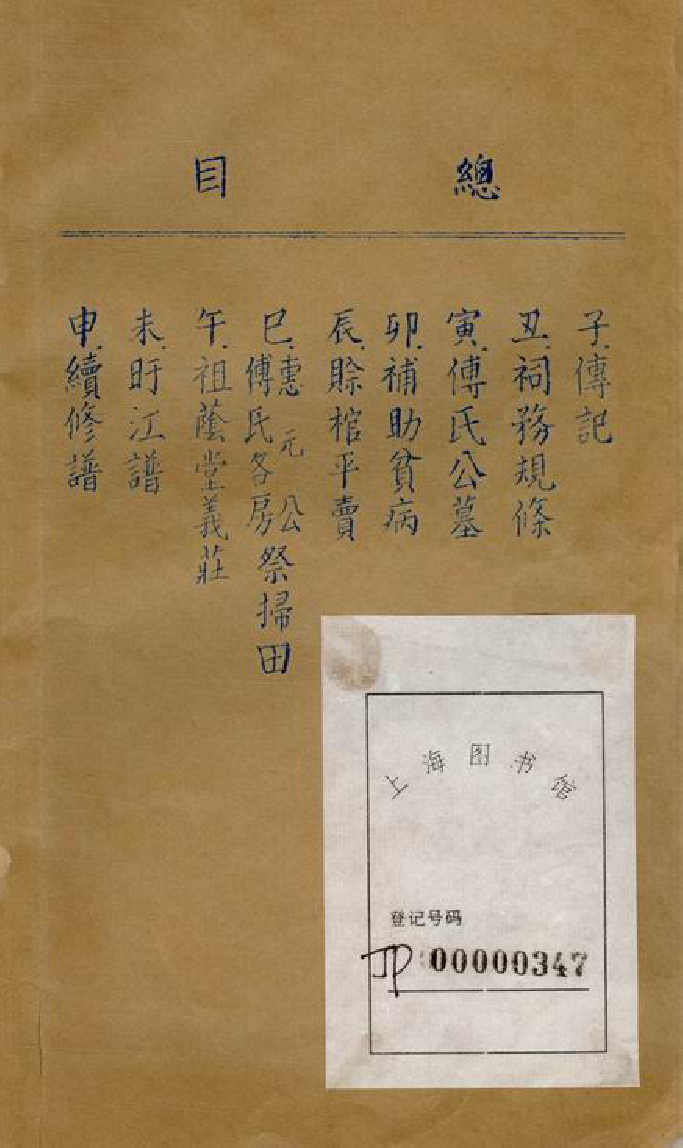 總目
子.傳記
丑.祠務規條
寅.傅氏公墓
卯.補助貧病
辰.賒棺平賣
巳.惠元公
傅氏各房祭掃田
午.祖蔭堂義莊
未.盱江譜
申.續修譜
上海图书馆
登记号码
JP 00000347